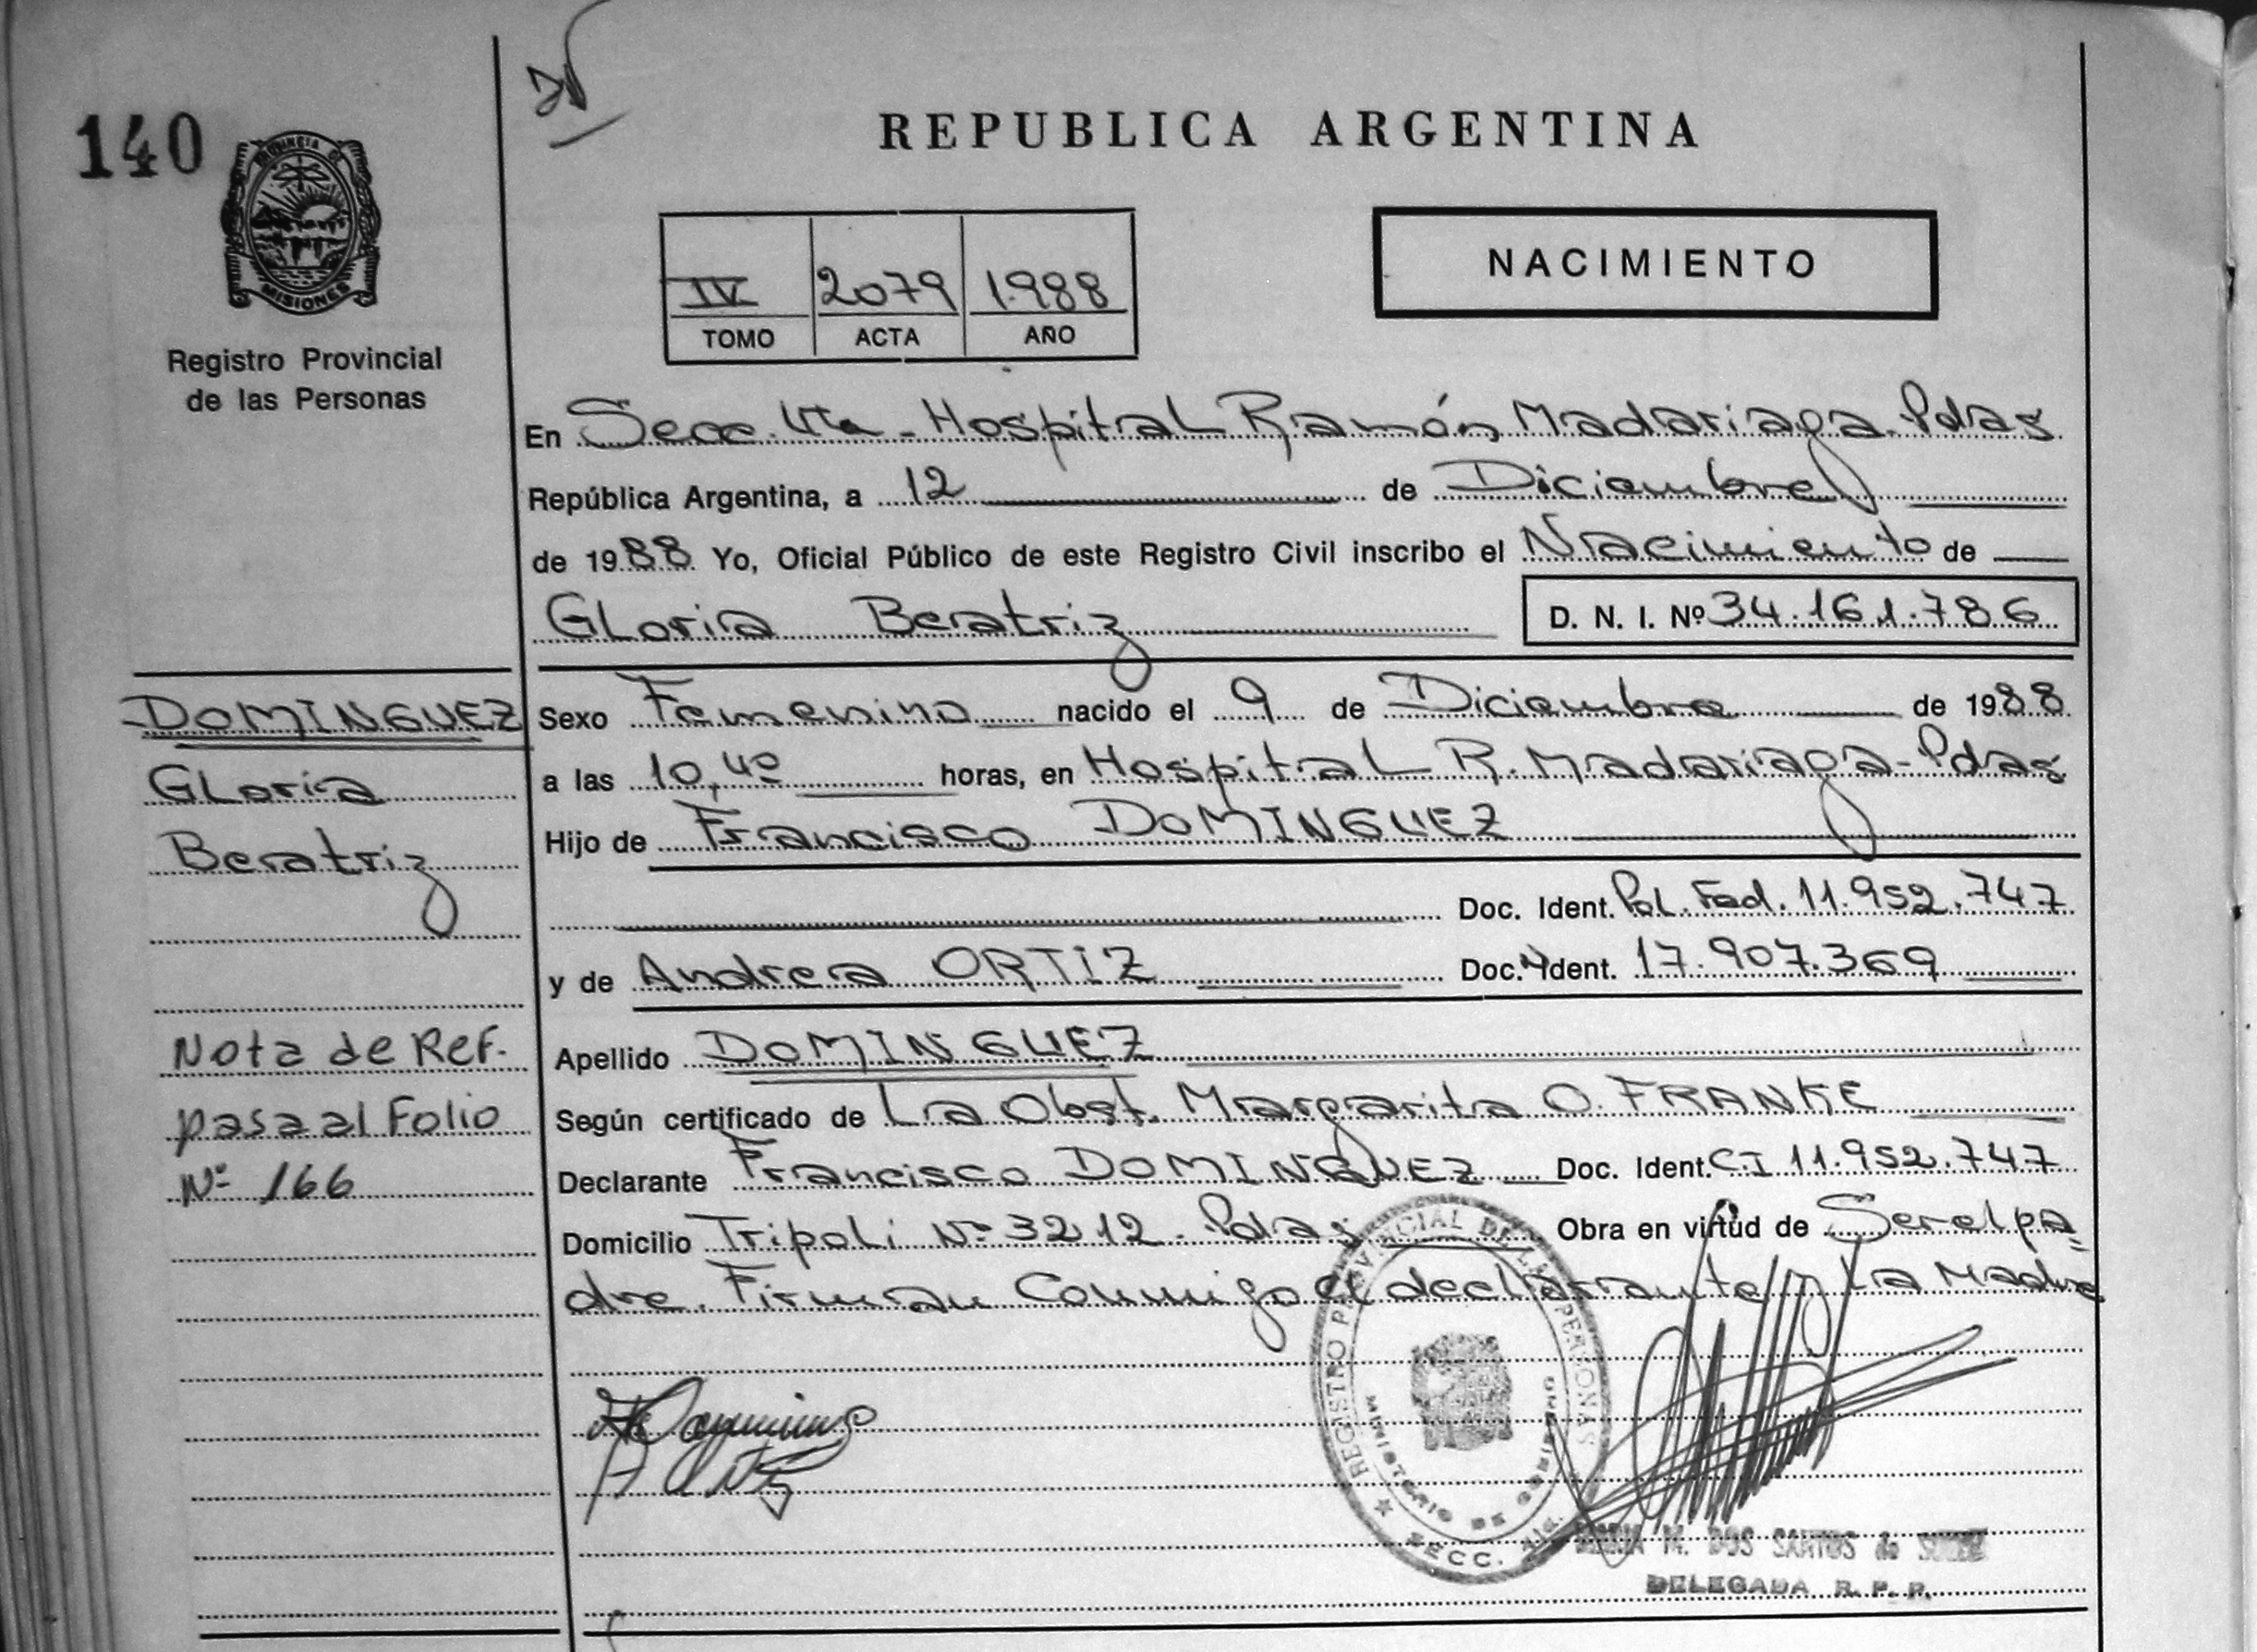 140
REPUBLICA ARGENTINA
PROVINCIA DE
MISIONES
Registro Provincial
de las Personas
IV 2079 1.988
TOMO ACTA AÑO
NACIMIENTO
En Secc. 4ta - Hospital Ramón Madariaga. Pdas
República Argentina, a 12 de Diciembre
de 1988 Yo, Oficial Público de este Registro Civil inscribo el Nacimiento de
Gloria Beatriz D. N. I. Nº 34.161.786
DOMINGUEZ
Gloria
Beatriz
Nota de Ref.
pasa al Folio
Nº 166
Sexo Femenino nacido el 9 de Diciembre de 1988
a las 10,40 horas, en Hospital R. Madariaga - Pdas
Hijo de Francisco DOMINGUEZ
Doc. Ident. Pol. Fed. 11.952.747
y de Andrea ORTIZ Doc. Ident. 17.907.369
Apellido DOMINGUEZ
Según certificado de La Obst. Margarita O. FRANKE
Declarante Francisco DOMINGUEZ Doc. Ident. C.I 11.952.747
Domicilio Tripoli Nº 3212. Pdas Obra en virtud de Ser el pa=
dre. Firman Conmigo el declarante y la Madre
REGISTRO PROVINCIAL DE LAS PERSONAS
MINISTERIO DE GOBIERNO
SECC. 4ta.
M. DOS SANTOS de
DELEGADA R. P. P.